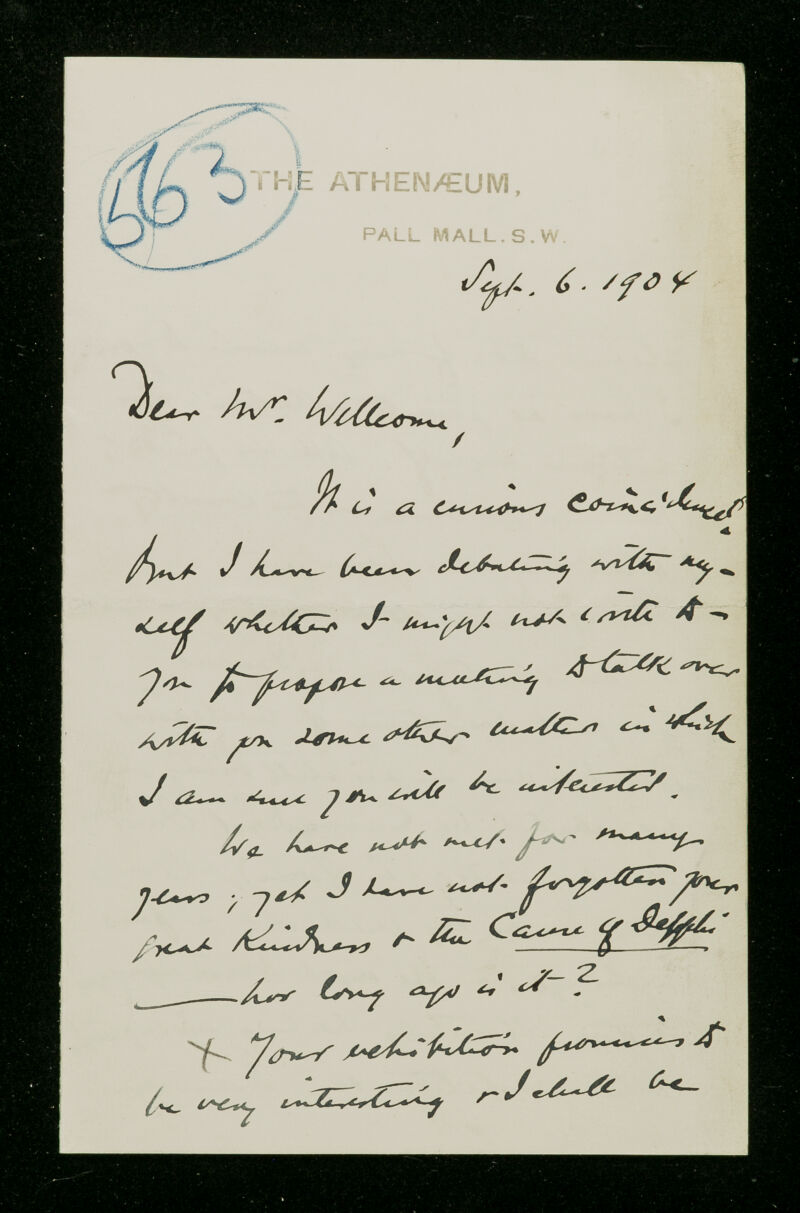 563
THE ATHENÆUM,
PALL MALL. S. W.
Sept. 6. 1904
Dear Mr. Wellcome,
It is a curious coincidence.
But I have been debating with my-
self whether I might not write to
you to propose a meeting to talk over
with you some other matter in which
I am sure you will be interested.
We have not met for many
years; yet I have not forgotten your
great Kindness & the Cause of Delphi
— how long ago is it?
x Your exhibition promises to
be very interesting & I shall be